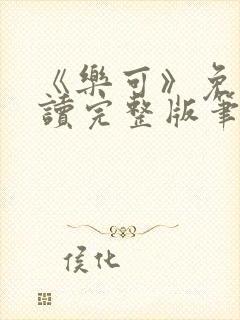 《樂可》免
讀完整版筆
侯化